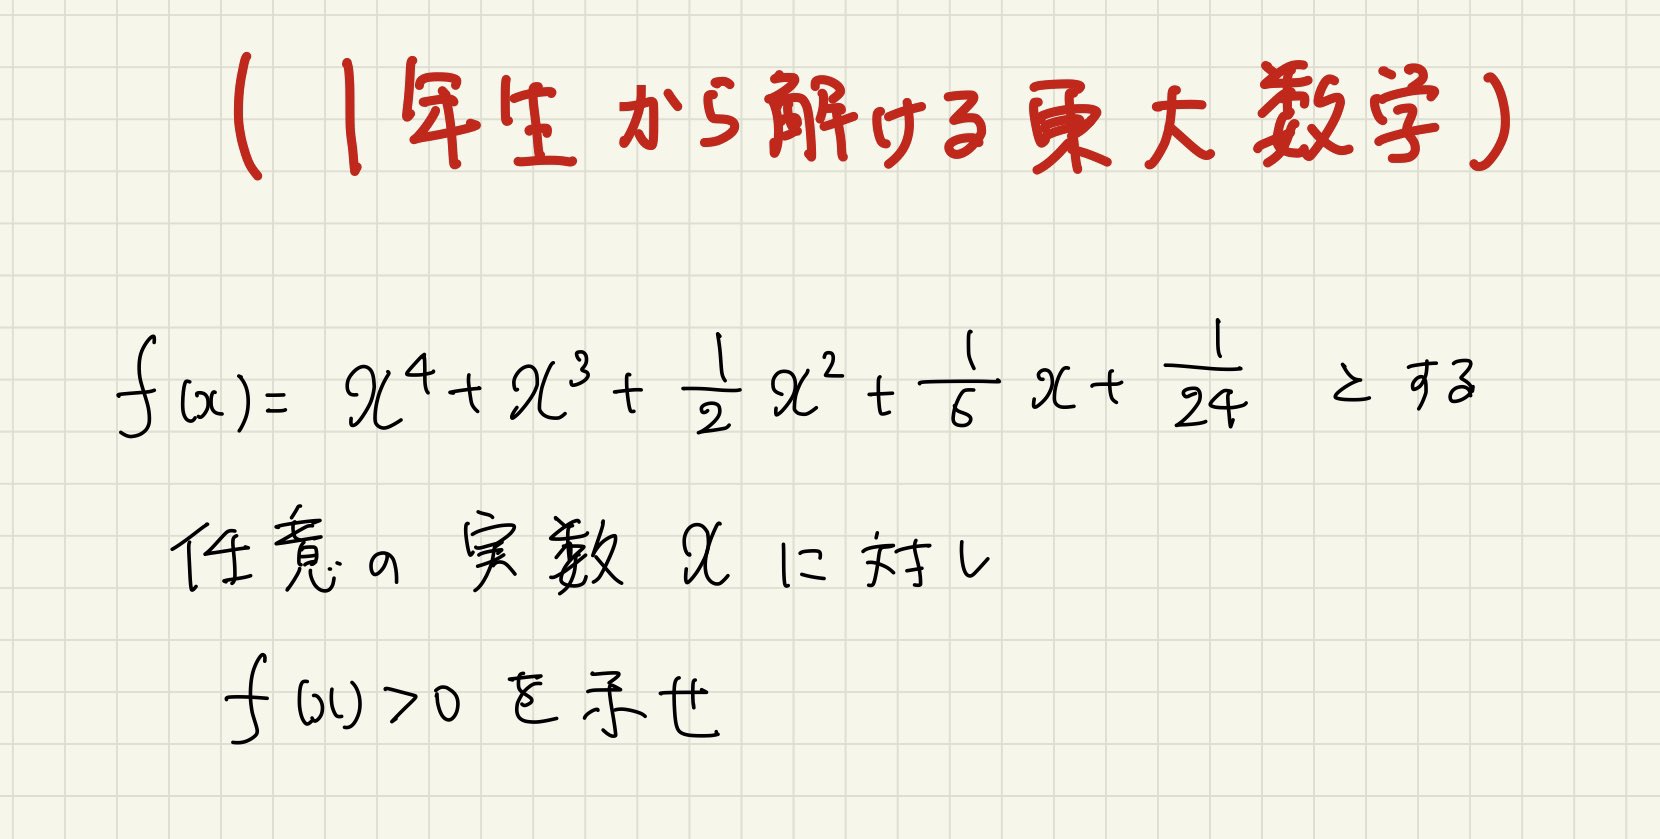 (1年生から解ける東大数学)
f(x) = x⁴ + x³ + 1/2 x² + 1/6 x + 1/24 とする
任意の実数 x に対し
f(x) > 0 を示せ